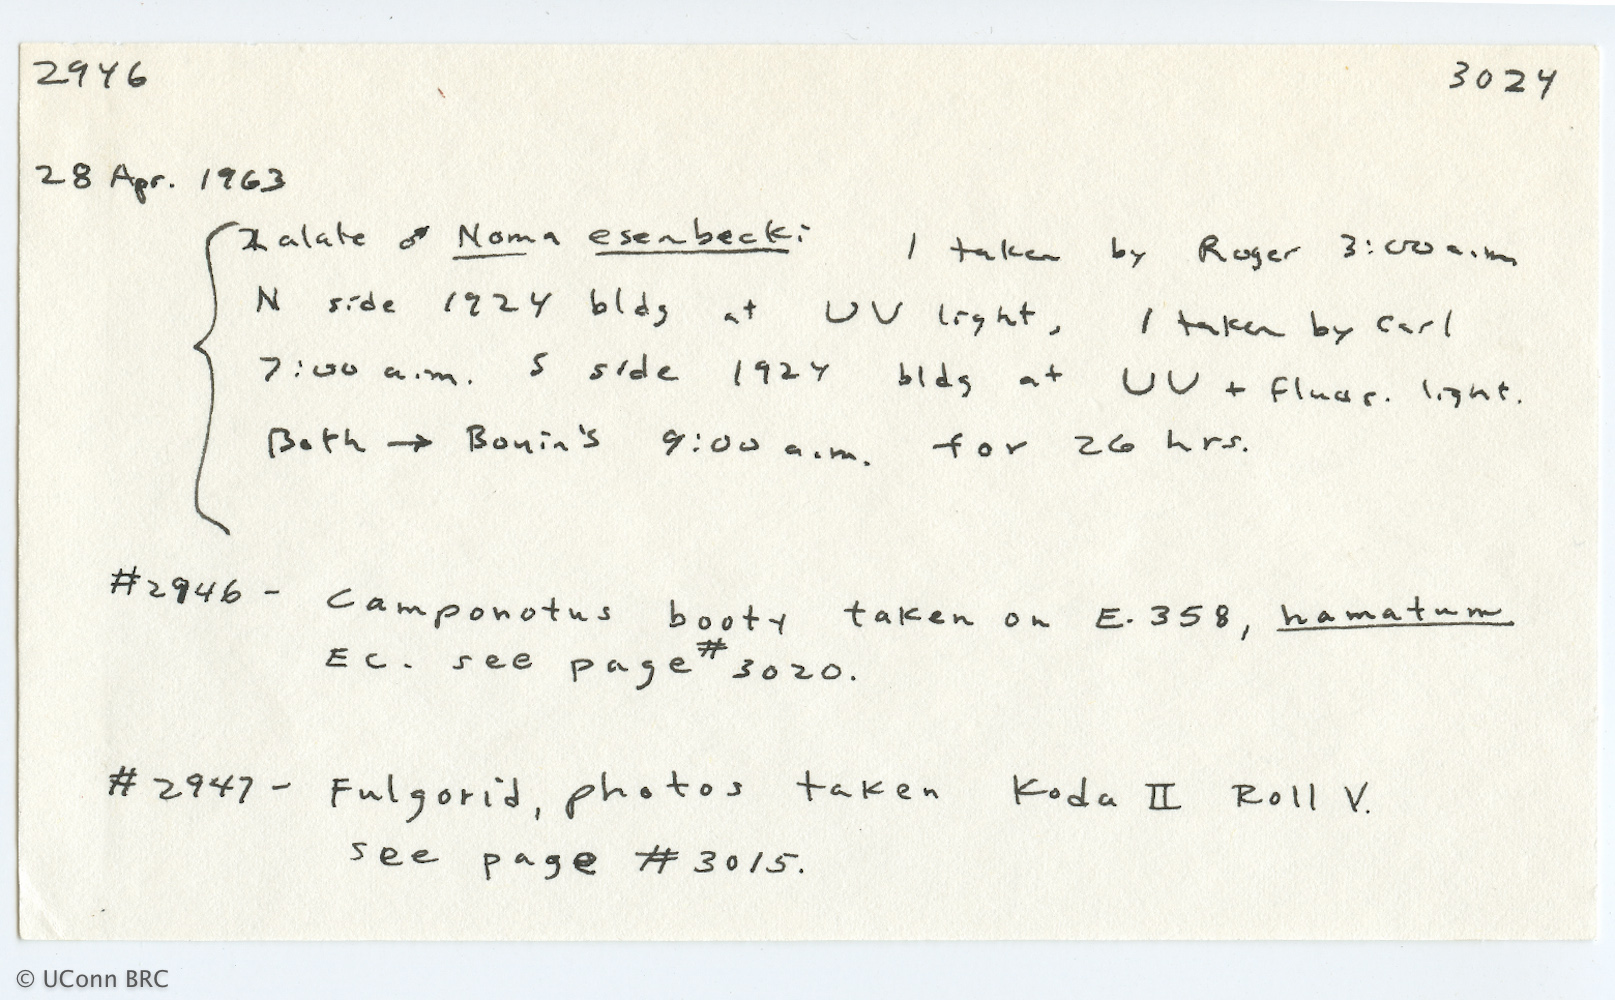 2946 3024
28 Apr. 1963
2 alate ♂ Noma esenbecki 1 taken by Roger 3:00 a.m
N side 1924 bldg at UV light, 1 taken by Carl
7:00 a.m. S side 1924 bldg at UV + fluor. light.
Both → Bouin's 9:00 a.m. for 26 hrs.
#2946 - Camponotus booty taken on E-358, hamatum
Ec. see page #3020.
#2947 - Fulgorid, photos taken Koda II Roll V.
see page #3015.
© UConn BRC